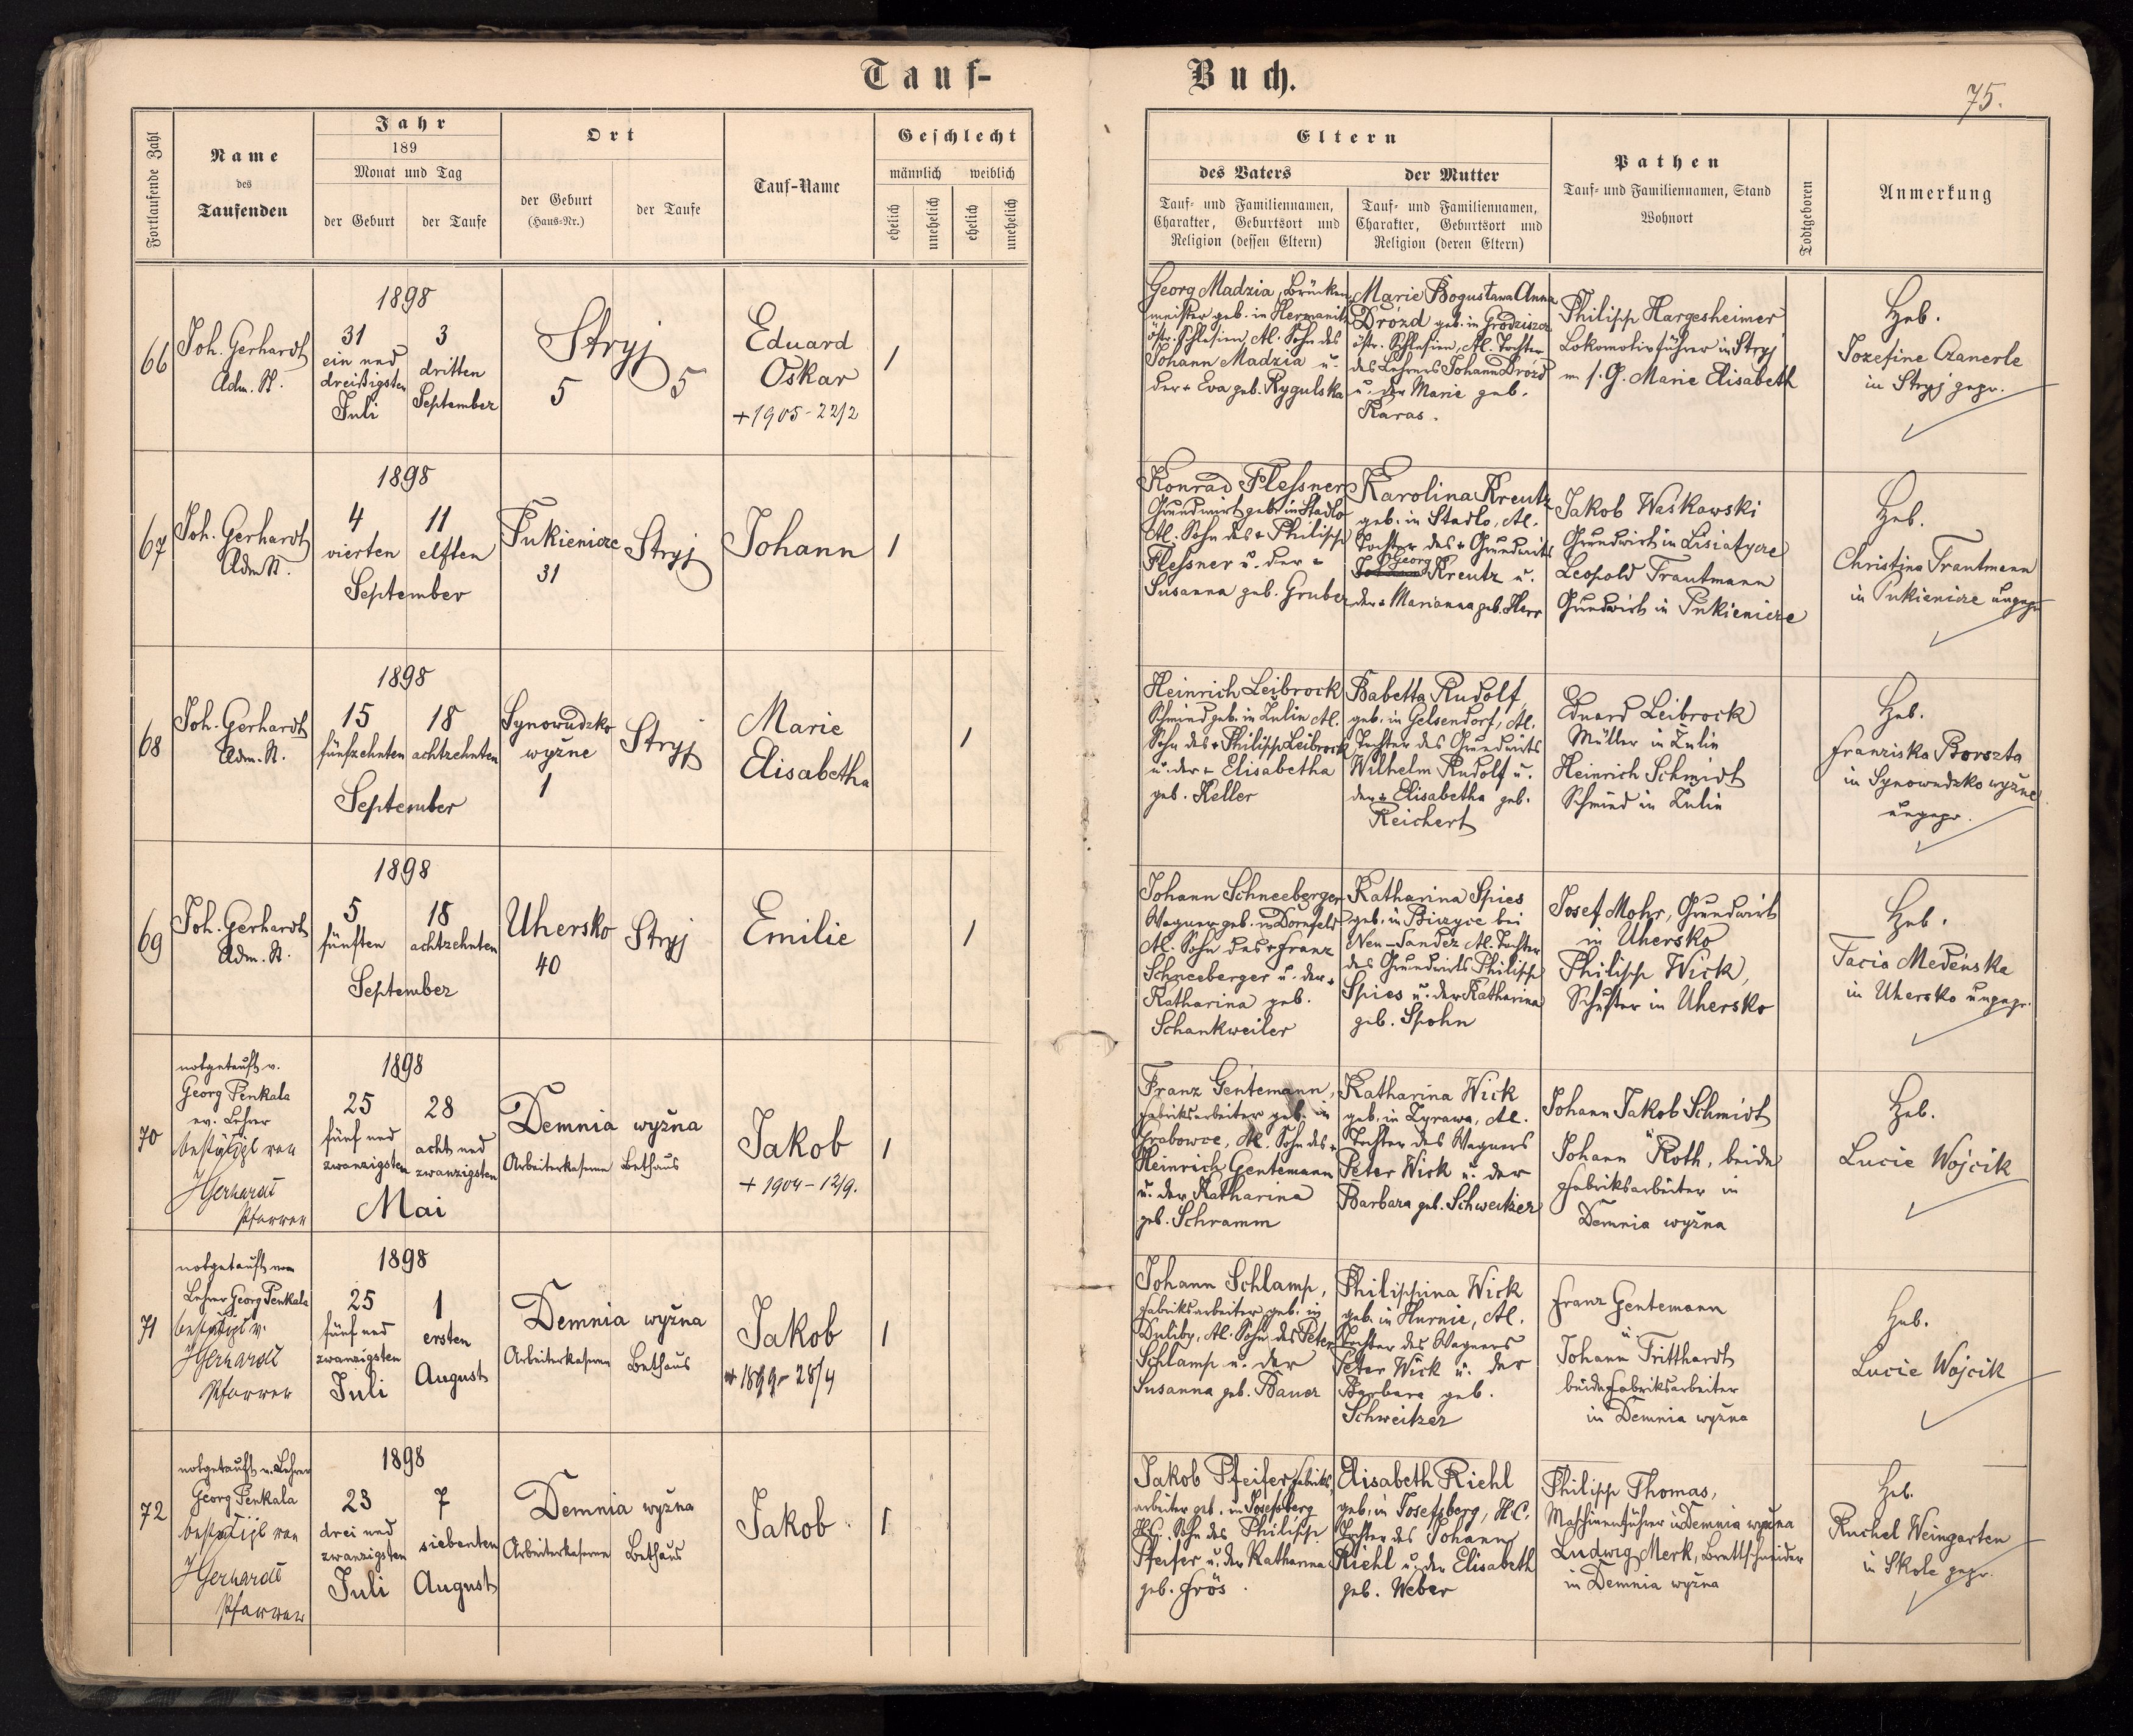 Tauf-
Buch.
75.
Fortlaufende Zahl
Name
des
Taufenden
Jahr
189
Monat und Tag
der Geburt
der Taufe
Ort
der Geburt
(Haus-Nr.)
der Taufe
Tauf-Name
Geschlecht
männlich
weiblich
ehelich
unehelich
ehelich
unehelich
Eltern
des Vaters
der Mutter
Tauf- und Familiennamen,
Charakter, Geburtsort und
Religion (dessen Eltern)
Tauf- und Familiennamen,
Charakter, Geburtsort und
Religion (deren Eltern)
Pathen
Tauf- und Familiennamen, Stand
Wohnort
Todtgeboren
Anmerkung
66
Joh. Gerhardt
Adm. St.
1898
31
ein und
dreißigsten
Juli
3
dritten
September
Stryj
5
5
Eduard
Oskar
+ 1905 - 22/2
1
Georg Madzia, Brücken-
meister geb. in Hermanitz
östr. Schlesien, Al. Sohn des
Johann Madzia u.
der + Eva geb. Rygulska
Marie Bogusława Anna
Drózd geb. in Grodziszcz
östr. Schlesien, Al. Tochter
des Lehrers Johann Drozd
u. der Marie geb.
Karas.
Philipp Hargesheimer
Lokomotivführer in Stryj
m. s. G. Marie Elisabeth
Heb.
Josefine Czanerle
in Stryj gepr.
67
Joh. Gerhardt
Adm St.
1898
4
vierten
11
elften
September
Pukienicze
31
Stryj
Johann
1
Konrad Flessner
Grundwirt geb. in Stadlo
Al. Sohn des + Philipp
Flessner u. der +
Susanna geb. Gruber
Karolina Kreutz
geb. in Stadlo, Al.
Tochter des + Grundwirts
Georg
Johann Kreutz u.
der + Marianna geb. Herr
Jakob Waśkawski
Grundwirt in Lisiatycze
Leopold Trautmann
Grundwirt in Pukienicze
Heb.
Christina Trautmann
in Pukienicze ungepr
68
Joh. Gerhardt
Adm. St.
1898
15
fünfzehnten
18
achtzehnten
September
Synowudzko
wyżne
1
Stryj
Marie
Elisabetha
1
Heinrich Leibrock
Schmied geb. in Zulin Al.
Sohn des + Philipp Leibrock
u. der + Elisabetha
geb. Keller
Babetta Rudolf,
geb. in Gelsendorf, Al.
Tochter des Grundwirts
Wilhelm Rudolf u.
der + Elisabetha geb.
Reichert
Eduard Leibrock
Müller in Zulin
Heinrich Schmidt
Schmied in Zulin
Heb.
Franziska Borszta
in Synowudzko wyżne
ungepr.
69
Joh. Gerhardt
Adm. St.
1898
5
fünften
18
achtzehnten
September
Uhersko
40
Stryj
Emilie
1
Johann Schneeberger
Wagner geb. in Dornfeld
Al. Sohn des + Franz
Schneeberger u. der +
Katharina geb.
Schankweiler
Katharina Spies
geb. in Biczyce bei
Neu-Sandez Al. Tochter
des Grundwirts Philipp
Spies u. der Katharina
geb. Spohn
Josef Mohr, Grundwirt
in Uhersko
Philipp Wick,
Schuster in Uhersko
Heb.
Tacia Medeńska
in Uhersko ungepr.
70
notgetauft v.
Georg Penkala
ev. Lehrer
bestätigt von
JGerhardt
Pfarrer
1898
25
fünf und
zwanzigsten
28
acht und
zwanzigsten
Mai
Demnia wyżna
Arbeiterkaserne
Bethaus
Jakob
+ 1904 - 12/9.
1
Franz Gentemann,
Fabriksarbeiter geb. in
Grabowce, Al. Sohn des +
Heinrich Gentemann
u. der Katharina
geb. Schramm
Katharina Wick
geb. in Zyrawa, Al.
Tochter des Wagners
Peter Wick u. der
Barbara geb. Schweitzer
Johann Jakob Schmidt
u
Johann Roth, beide
Fabriksarbeiter in
Demnia wyżna
Heb.
Lucie Wojcik
71
notgetauft von
Lehrer Georg Penkala
bestätigt v.
JGerhardt
Pfarrer
1898
25
fünf und
zwanzigsten
Juli
1
ersten
August
Demnia wyżna
Arbeiterkasern
Bethaus
Jakob
+ 1899 - 28/4
1
Johann Schlamp,
Fabriksarbeiter geb. in
Duliby, Al. Sohn des Peter
Schlamp u. der
Susanna geb. Bauer
Philippina Wick
geb. in Hurnie, Al.
Tochter des Wagners
Peter Wick u. der
Barbara geb.
Schweitzer
Franz Gentemann
u.
Johann Tritthardt
beide Fabriksarbeiter
in Demnia wyżna
Heb.
Lucie Wojcik
72
notgetauft v. Lehrer
Georg Penkala
bestätigt von
JGerhardt
Pfarrer
1898
23
drei und
zwanzigsten
Juli
7
siebenten
August
Demnia wyżna
Arbeiterkaserne
Bethaus
Jakob
1
Jakob Pfeifer Fabriks-
arbeiter geb. in Josefsberg
H.C. Sohn des Philipp
Pfeifer u. der Katharina
geb. Frös.
Elisabeth Riehl
geb. in Josefsberg, H.C.
Tochter des Johann
Riehl u. der Elisabeth
geb. Weber
Philipp Thomas,
Maschinenführer in Demnia wyżna
Ludwig Merk, Brettschneider
in Demnia wyżna
Heb.
Ruchel Weingarten
in Skole gepr.